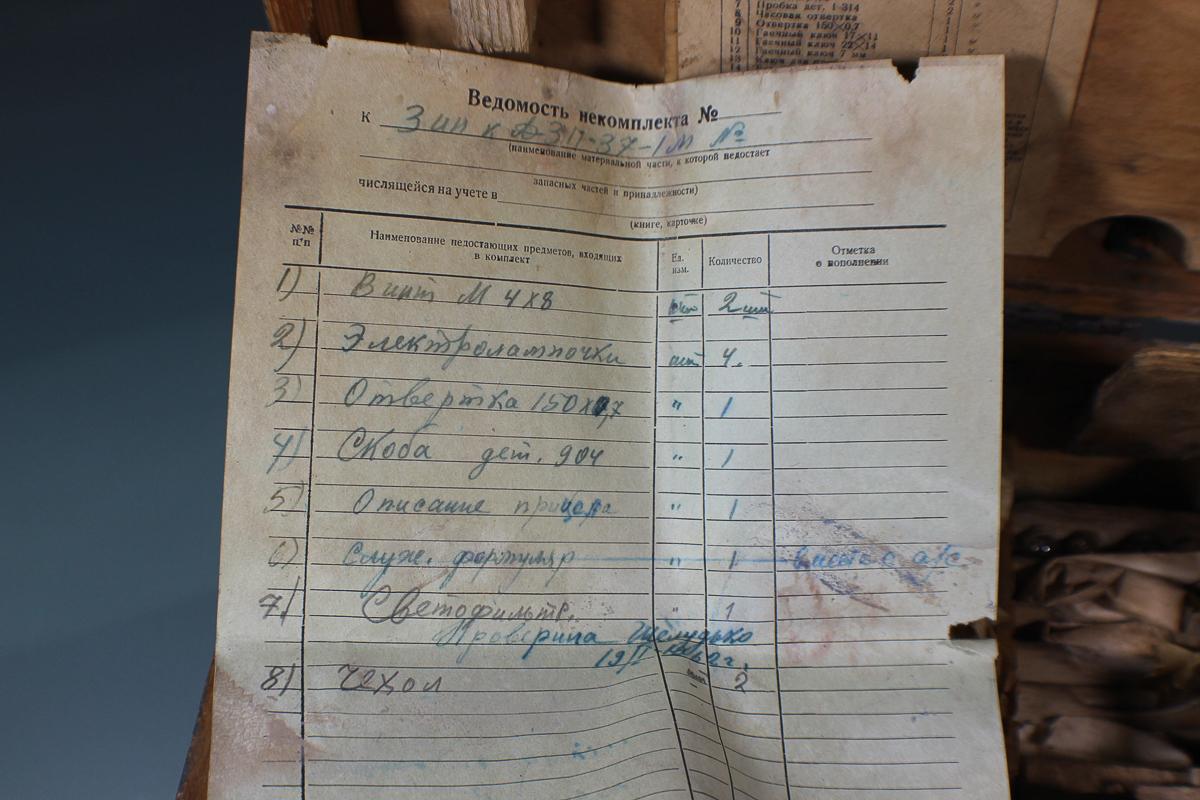 7 Пробка дет. 1-314
8 Часовая отвертка
9 Отвертка 150×0,7
10 Гаечный ключ 17×11
11 Гаечный ключ 22×14
12 Гаечный ключ 7 мм
13
Ведомость некомплекта №
К Зип к АЗП-37-1М №
(наименование материальной части, к которой недостает
запасных частей и принадлежности)
числящейся на учете в
(книге, карточке)
№№ п/п Наименование недостающих предметов, входящих в комплект Ед. изм. Количество Отметка о пополнении
1) Винт М 4х8 шт 2 шт
2) Электролампочки шт 4.
3) Отвертка 150х0,7 " 1
4) Скоба дет. 904 " 1
5) Описание прицела " 1
6) Служ. формуляр " 1 вместе с а/с
7) Светофильтр. " 1
Проверила Шелудько
8) Чехол 2